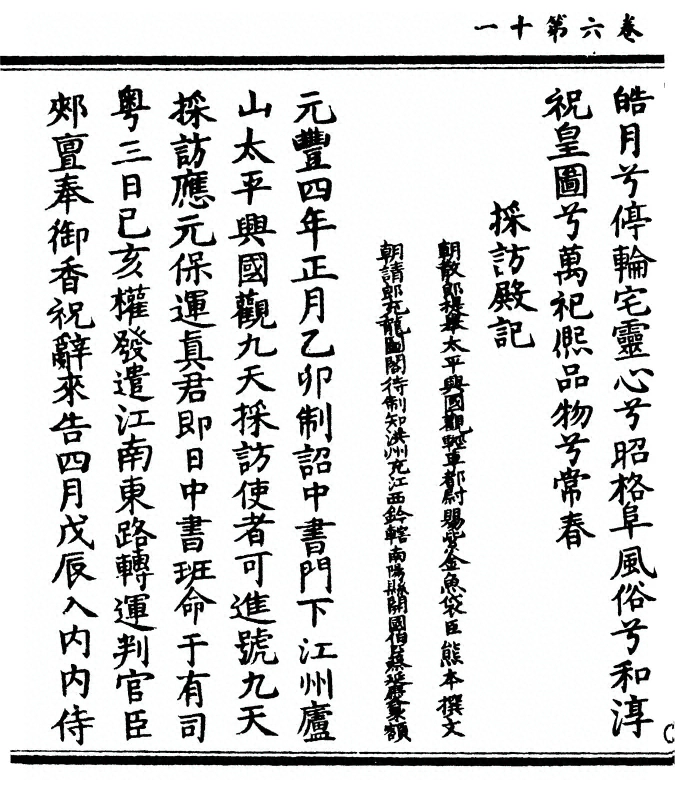 卷六第十一
皓月兮停輪宅靈心兮昭格阜風俗兮和淳
祝皇圖兮萬祀熈品物兮常春
採訪殿記
朝散郎提舉太平興國觀輕車都尉賜紫金魚袋臣熊本撰文
朝請郎充龍圖閣待制知洪州充江西鈐轄南陽縣開國伯臣蔡延慶篆額
元豐四年正月乙卯制詔中書門下江州廬
山太平興國觀九天採訪使者可進號九天
採訪應元保運真君即日中書班命于有司
粵三日己亥權發遣江南東路轉運判官臣
郟亶奉御香祝辭來告四月戊辰入内内侍